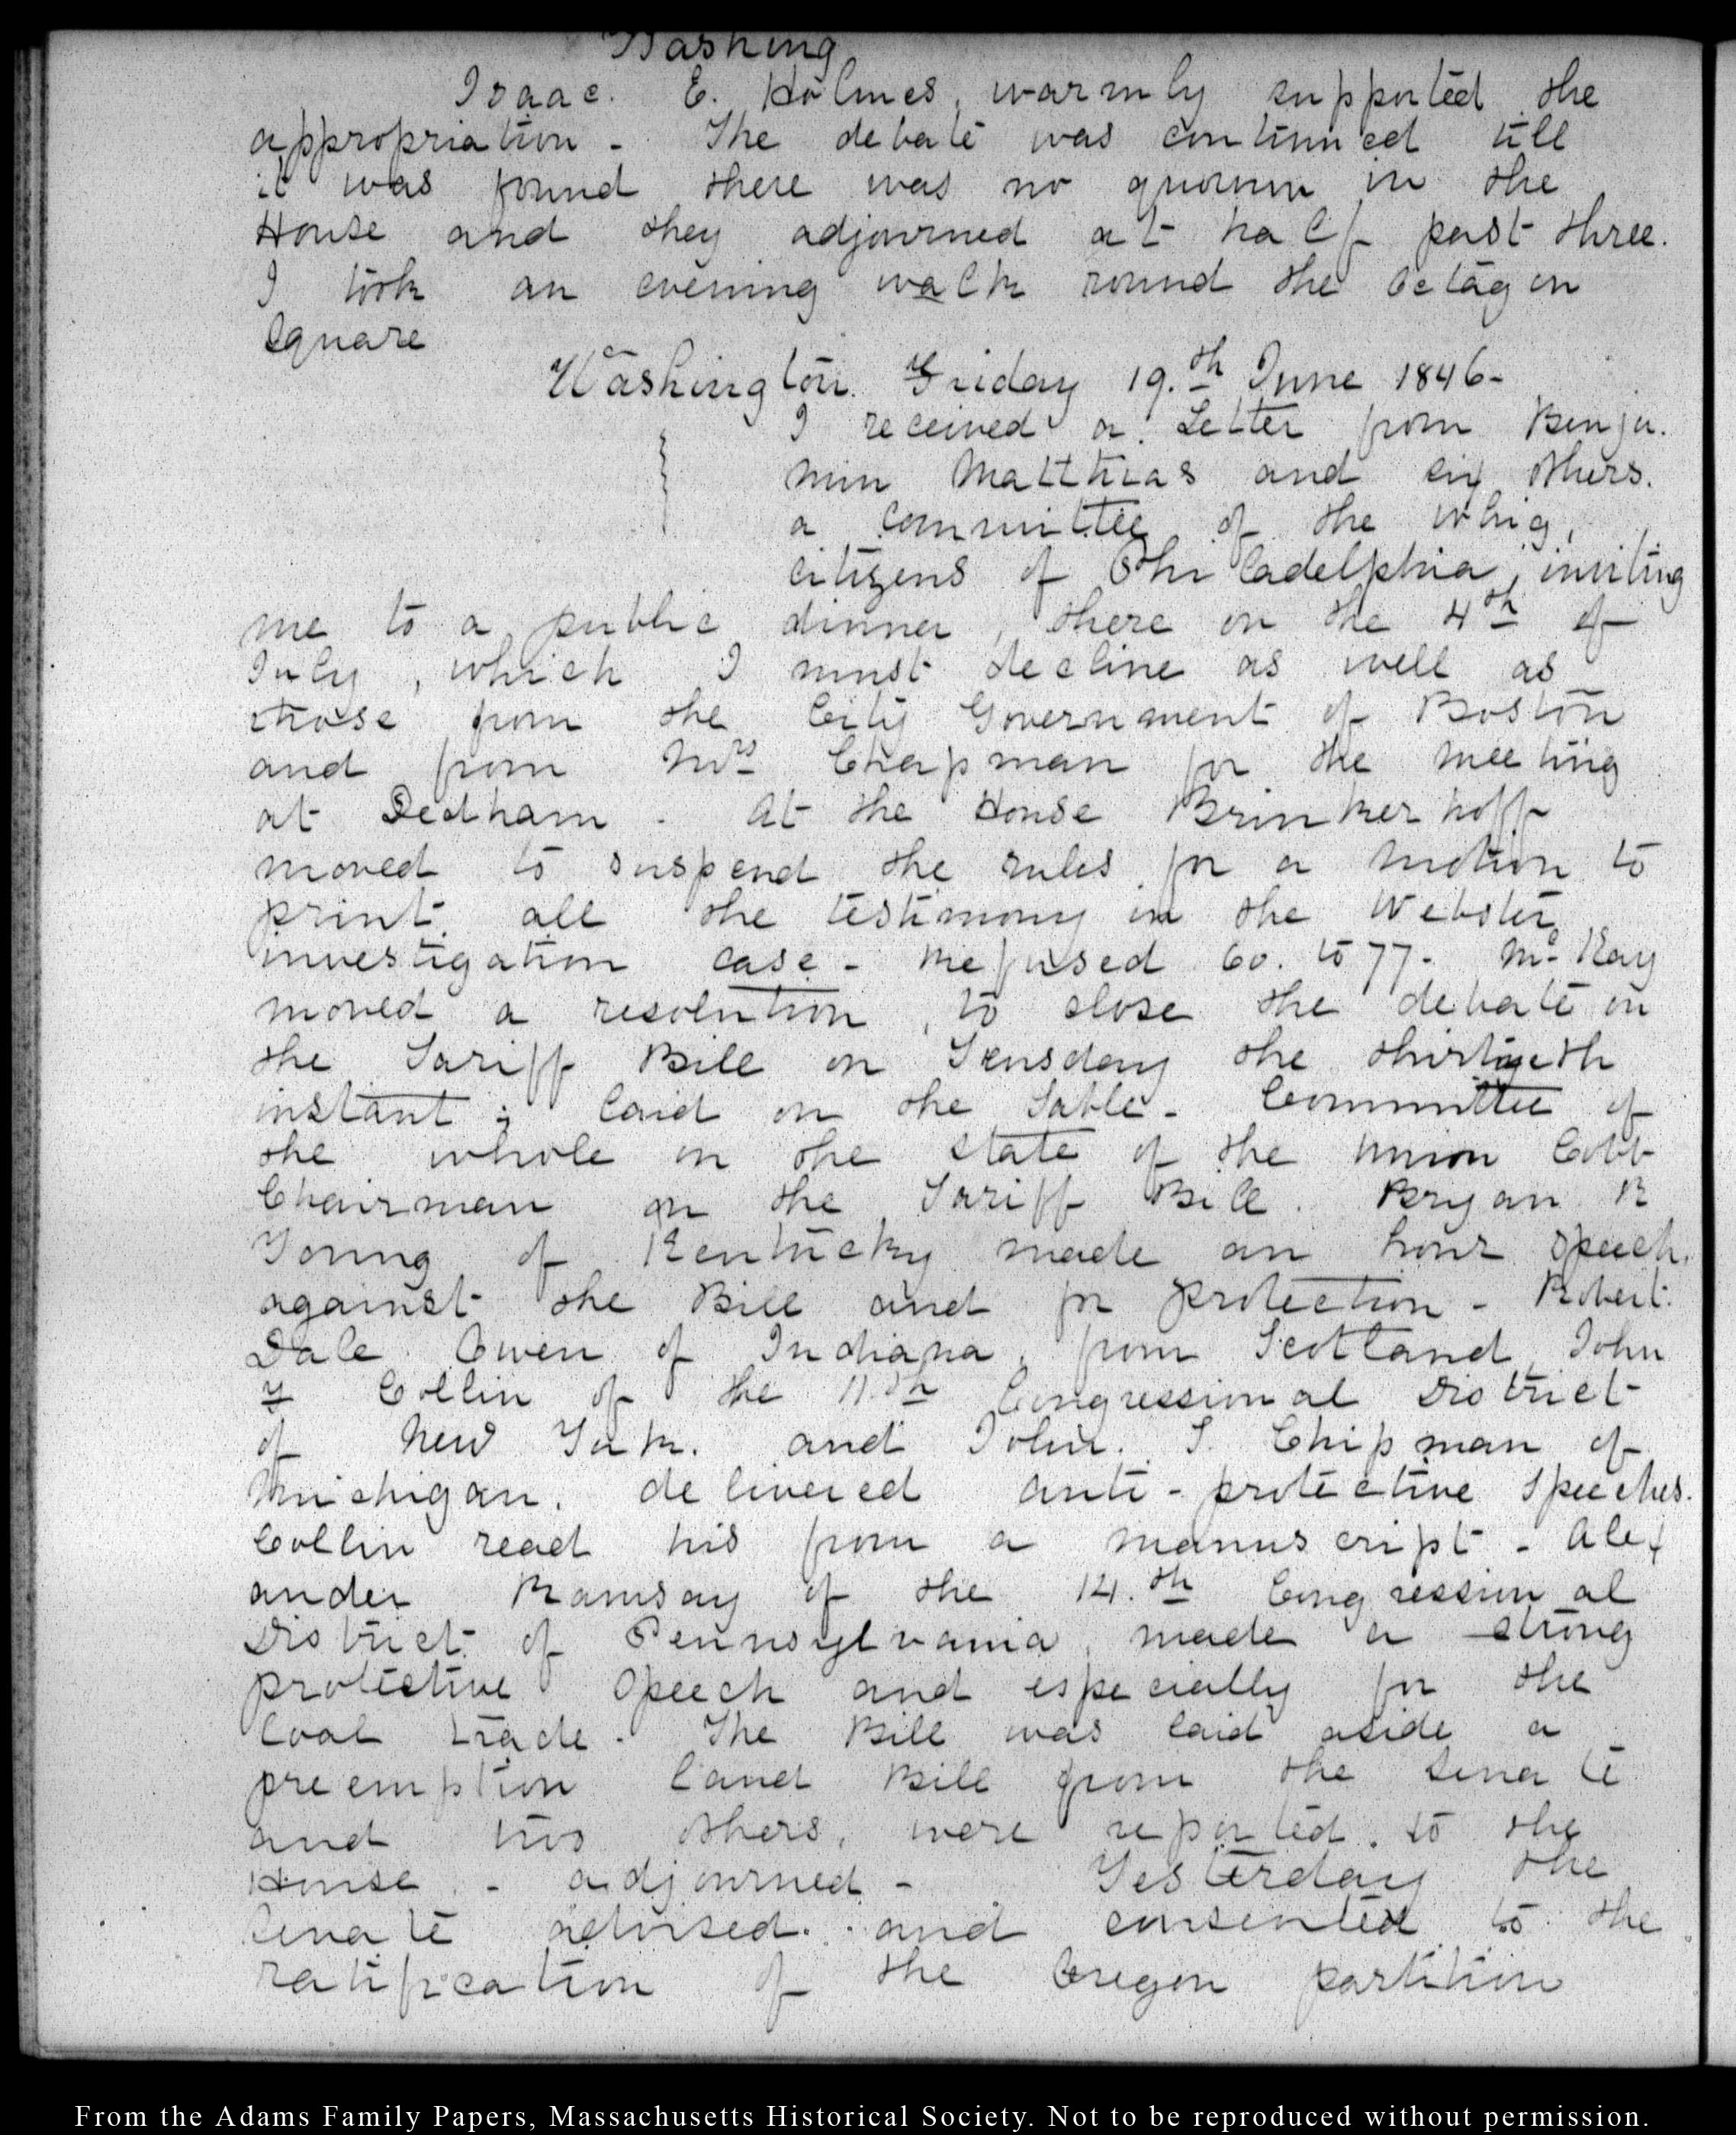 Washing
Isaac. E. Holmes, warmly supported the
appropriation - The debate was continued till
it was found there was no quorum in the
House and they adjourned at half past three.
I took an evening walk round the Octagon
Square
Washington. Friday 19.th June 1846-
I received a Letter from Benja.
min Matthias and six others.
a committee of the Whig,
citizens of Philadelphia, inviting
me to a public dinner, there on the 4th of
July, which I must decline as well as
those from the City Government of Boston
and from Mrs Chapman for the meeting
at Dedham - At the House Brinkerhoff
moved to suspend the rules for a motion to
print all the testimony in the Webster
investigation case - Refused 60. to 77 - Mc Kay
moved a resolution, to close the debate on
the Tariff Bill on Teusday the thirtyeth
instant; laid on the Table - Committee of
the whole on the state of the Union Cobb
Chairman on the Tariff Bill. Bryan R
Young of Kentucky made an hour speech.
against the Bill and for protection - Robert
Dale Owen of Indiana, from Scotland, John
F Collin of the 11.th Congressional District
of New York. and John. S. Chipman of
Michigan. delivered anti-protective speeches.
Collin read his from a manuscript - Alex
ander Ramsay of the 14.th Congressional
District of Pennsylvania, made a strong
protective speech and especially for the
Coal trade - The Bill was laid aside a
preemption land Bill from the Senate
and two others, were reported. to the
House - adjourned - Yesterday the
Senate advised. and consented to the
ratification of the Oregon partition
From the Adams Family Papers, Massachusetts Historical Society. Not to be reproduced without permission.